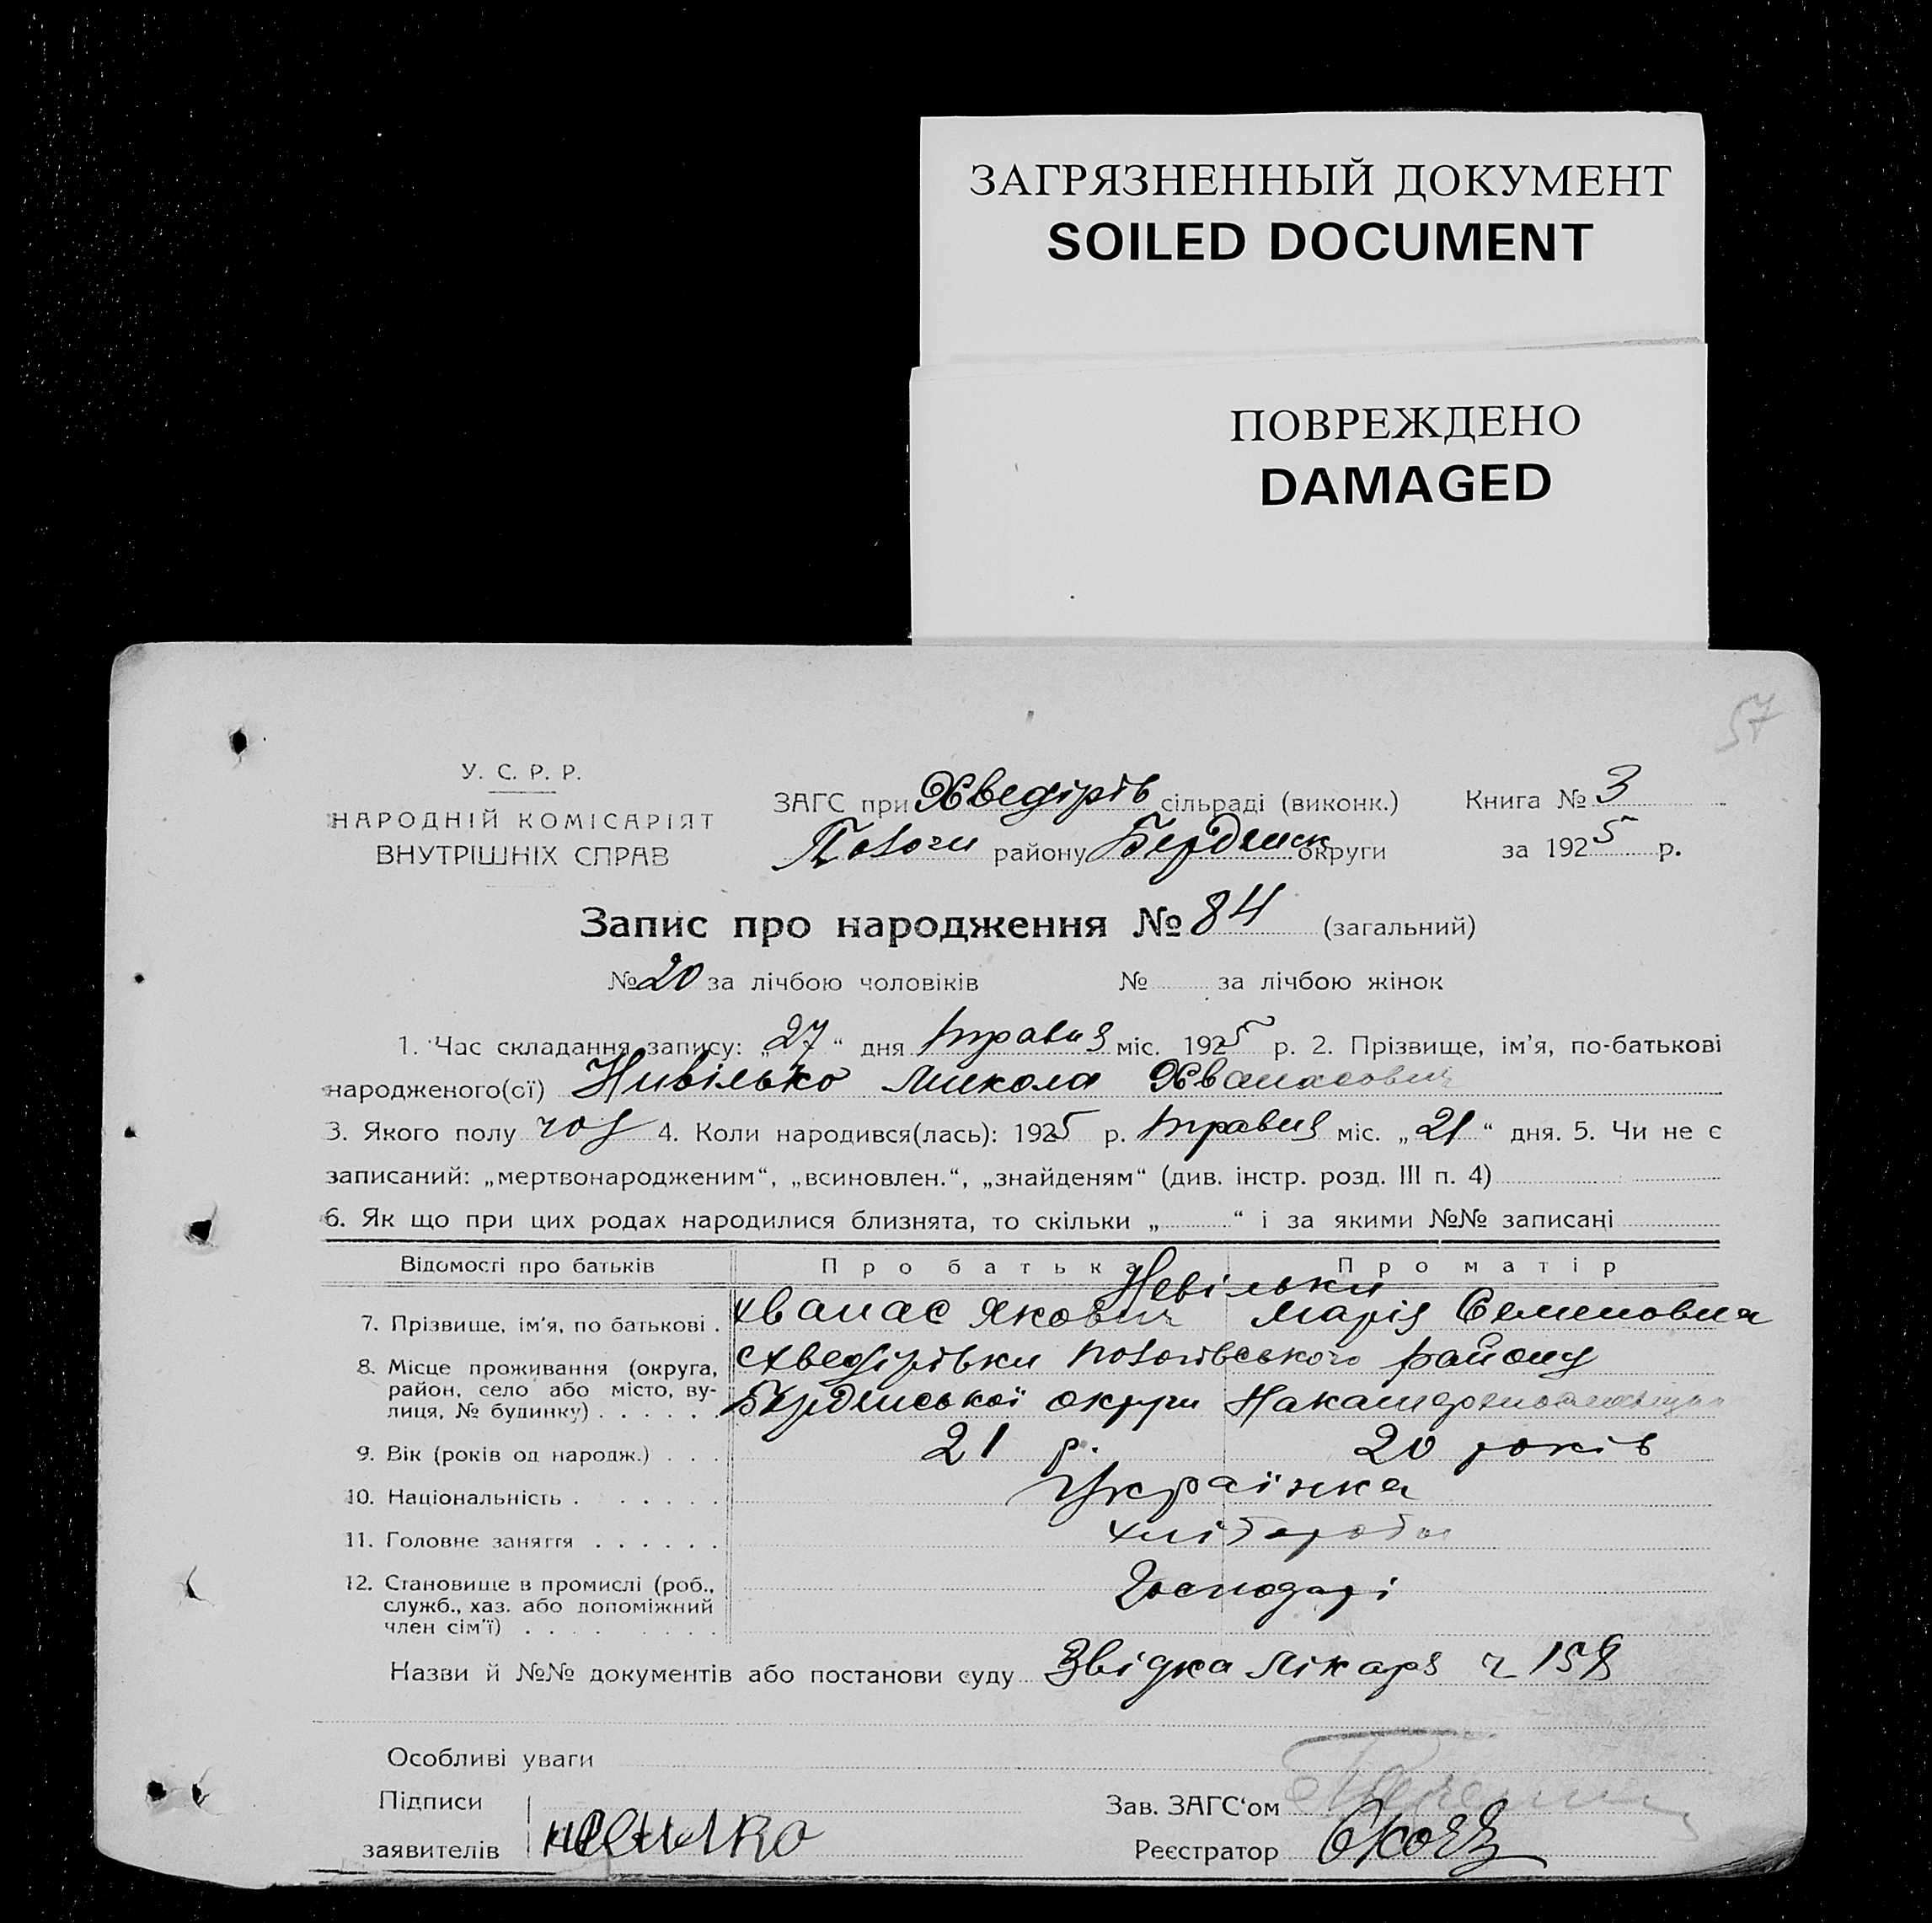 ЗАГРЯЗНЕННЫЙ ДОКУМЕНТ
SOILED DOCUMENT
ПОВРЕЖДЕНО
DAMAGED
57
У. С. Р. Р.
НАРОДНІЙ КОМІСАРІЯТ
ВНУТРІШНІХ СПРАВ
ЗАГС при Хведірів сільраді (виконк.) Книга № 3
району Бердянськ округи за 1925 р.
Запис про народження № 84 (загальний)
№ 20 за лічбою чоловіків № за лічбою жінок
1. Час складання запису: „27“ дня травня міс. 1925 р. 2. Прізвище, ім'я, по-батькові
народженого(ої) Нивілько Микола Хванасович
3. Якого полу чол 4. Коли народився(лась): 1925 р. травня міс. „21“ дня. 5. Чи не є
записаний: „мертвонародженим“, „всиновлен.“, „знайденям“ (див. інстр. розд. III п. 4)
6. Як що при цих родах народилися близнята, то скільки „ “ і за якими №№ записані
Відомості про батьків Про батька Про матір
Невільки
7. Прізвище, ім'я, по батькові . Хванас Якович Марія Семеновна
8. Місце проживання (округа, Хведірівки району
район, село або місто, ву- Бердянської округи
лиця, № будинку) . . . . . .
9. Вік (років од народж.) . . . 21 р. 20 років
10. Національність . . . . . . Українка
11. Головне заняття . . . . . . хлібороби
12. Становище в промислі (роб., Господарі
служб., хаз. або допоміжний
член сім'ї) . . . . . . . .
Назви й №№ документів або постанови суду Звідка лікаря ч 158
Особливі уваги
Підписи Зав. ЗАГС'ом
заявителів Реєстратор